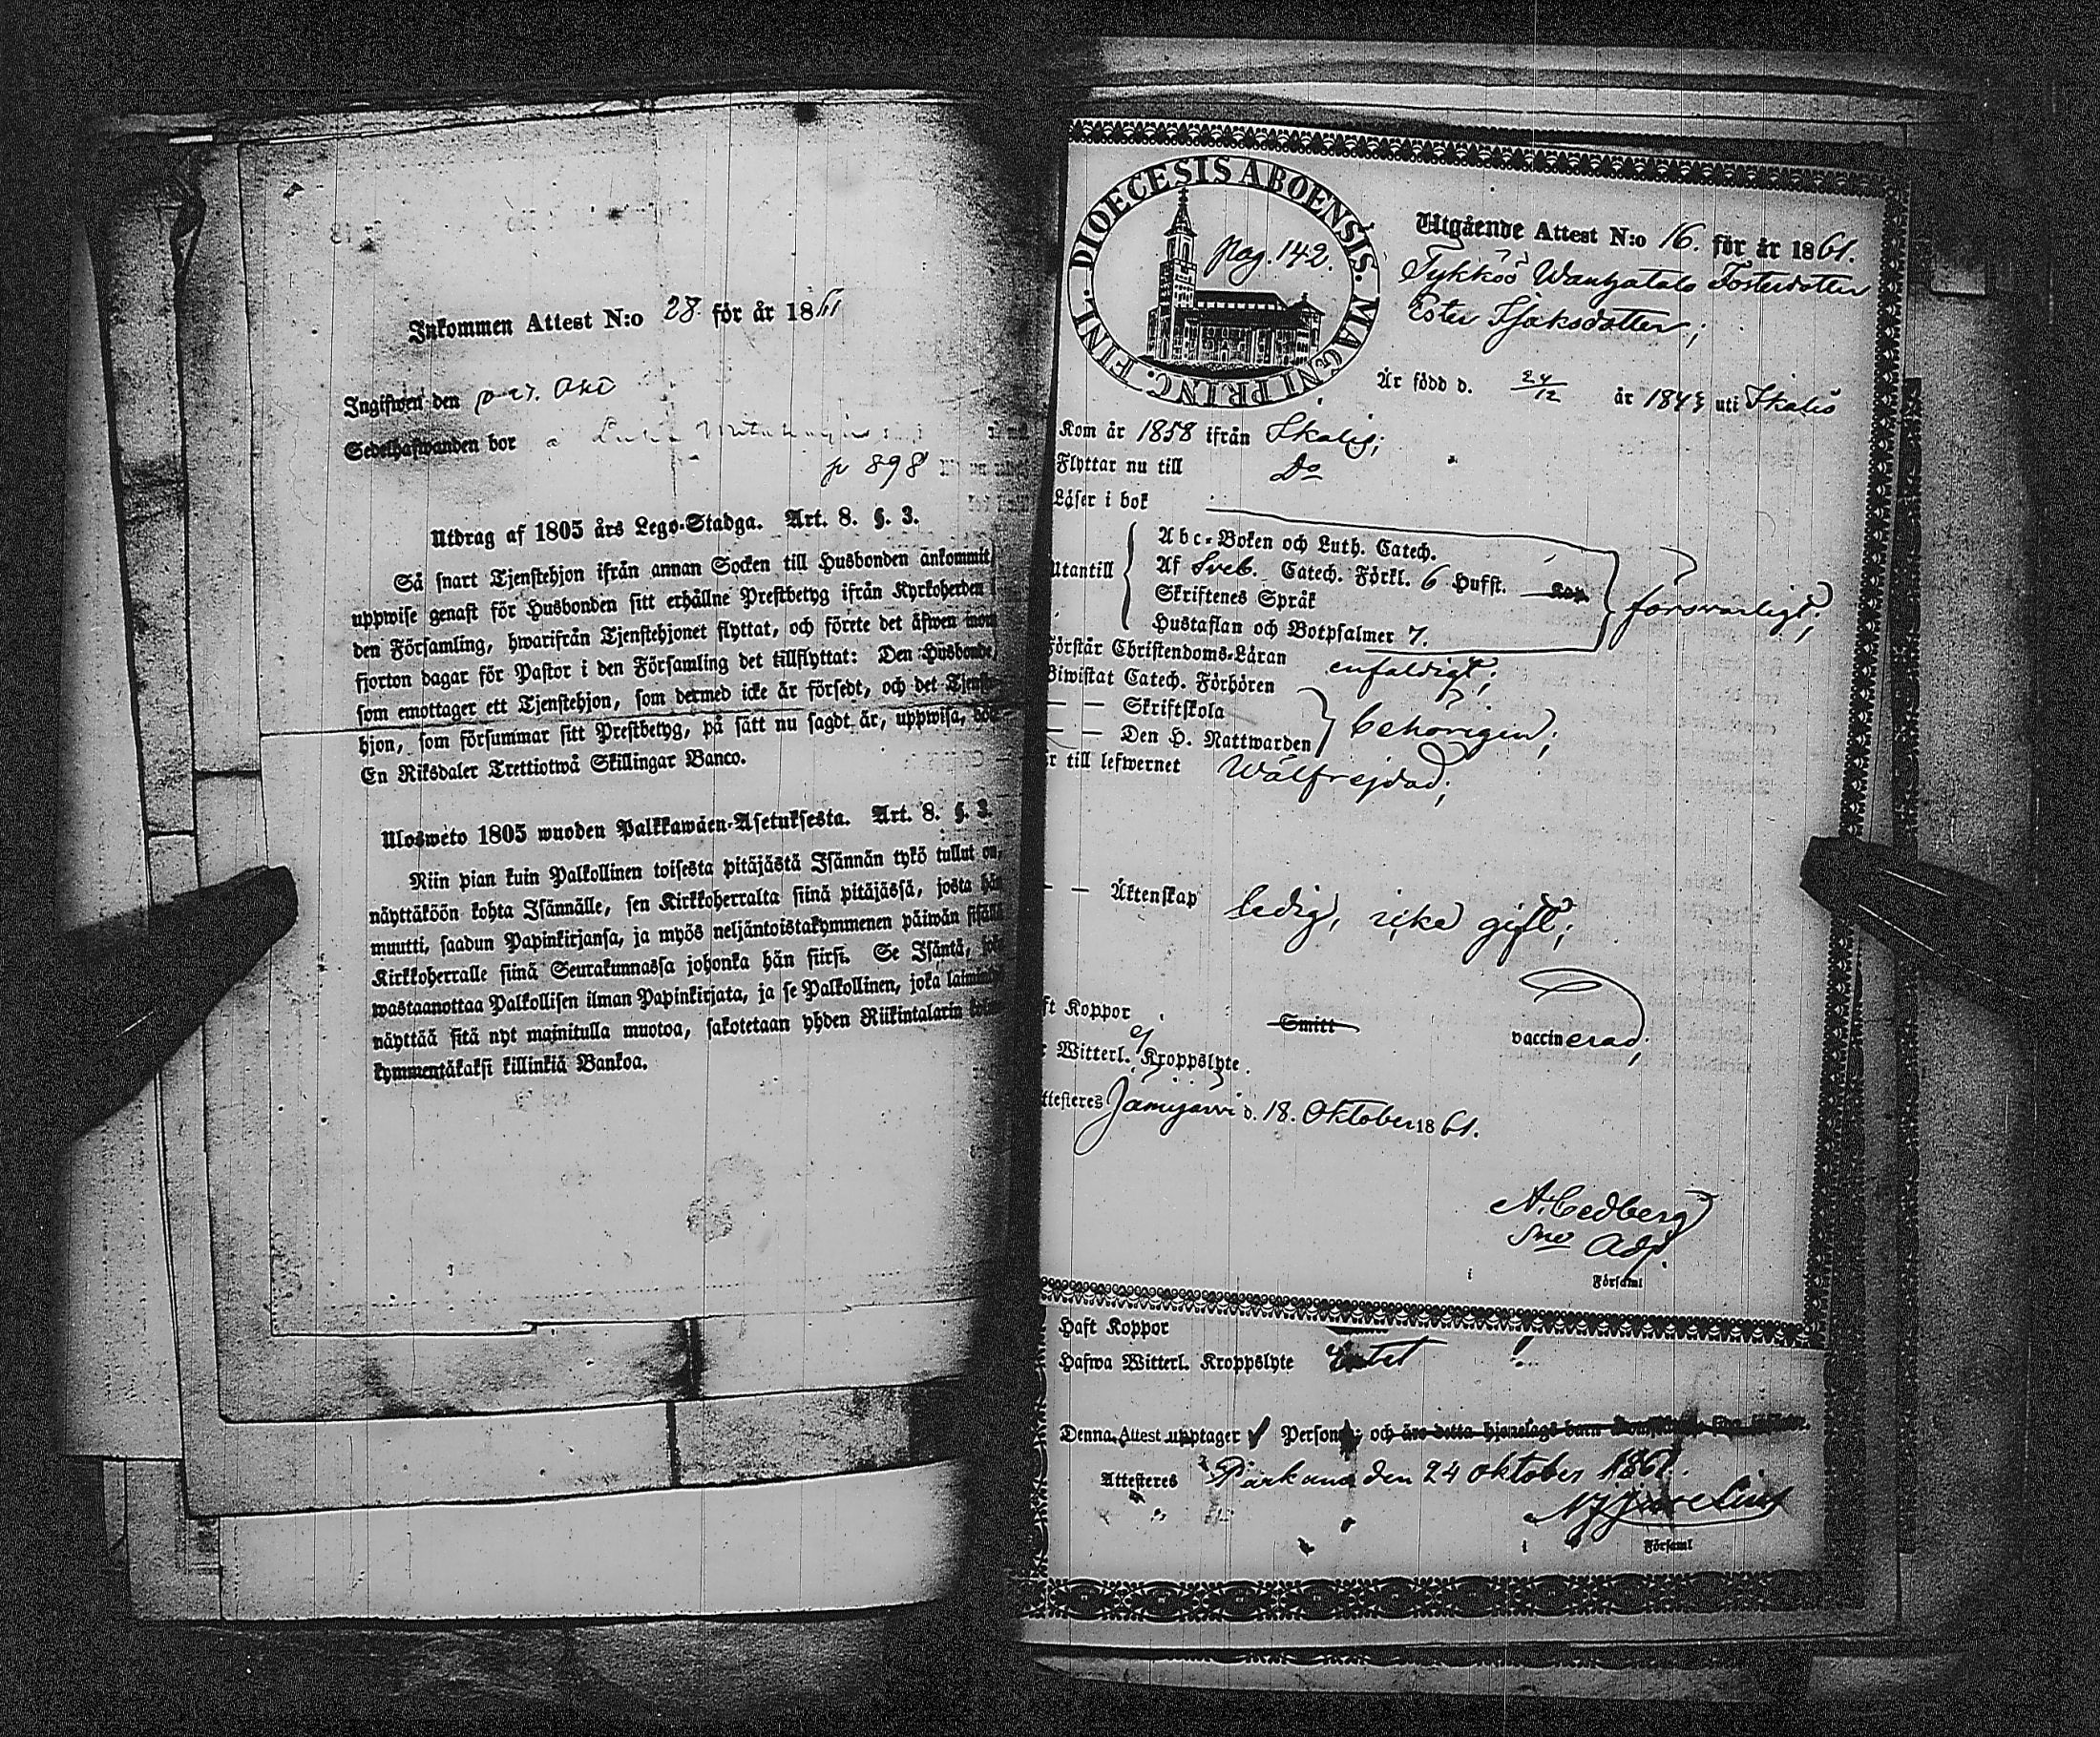 Inkommen Attest N:o 28. för år 1861
Ingifwen den 27. Okt
Sedelhafwanden bor
p 898
Utdrag af 1805 års Lego-Stadga. Art. 8. §. 3.
Så snart Tjenstehjon ifrån annan Socken till Husbonden ankommit,
uppwise genast för Husbonden sitt erhållne Prestbetyg ifrån Kyrkoherden i
den Församling, hwarifrån Tjenstehjonet flyttat, och förete det äfwen inom
fjorton dagar för Pastor i den Församling det tillflyttat: Den Husbonde,
som emottager ett Tjenstehjon, som dermed icke är försedt, och det Tjenste-
hjon, som försummar sitt Prestbetyg, på sätt nu sagdt är, uppwisa,
En Riksdaler Trettiotwå Skillingar Banco.
Ulosweto 1805 wuoden Palkkawäen-Asetuksesta. Art. 8. §. 3.
Niin pian kuin Palkollinen toisesta pitäjästä Isännän tykö tullut on,
näyttäköön kohta Isännälle, sen Kirkkoherralta siinä pitäjässä, josta hän
muutti, saadun Papinkirjansa, ja myös neljäntoistakymmenen päiwän sisällä
Kirkkoherralle siinä Seurakunnassa johonka hän siirsi. Se Isäntä, joka
wastaanottaa Palkollisen ilman Papinkirjata, ja se Palkollinen, joka laiminlyö
näyttää sitä nyt mainitulla muotoa, sakotetaan yhden Riikintalarin
kymmentäkaksi killinkiä Bankoa.
FINL. DIOECESIS ABOENSIS. MAGNI PRINC.
Pag. 142.
Utgående Attest N:o 16. för år 1861.
Tykköö Wanhatalo Fosterdotter
Ester Isaksdotter;
Är född d. 24/12 år 184 uti Ikalis
Kom år 1858 ifrån Ikalis;
Flyttar nu till Do
Läser i bok
Utantill
Abc-Boken och Luth. Catech.
Af Sveb. Catech. Förkl. 6 Hufst.
Skriftenes Språk
Hustaflan och Botpsalmer 7.
försvarligt;
Förstår Christendoms-Läran enfaldigt;
Biwistat Catech. Förhören
— — Skriftskola
— — Den H. Nattwarden
behörigen;
r till lefwernet Wälfrejdad;
— — Äktenskap ledig, icke gift;
ft Koppor Smitt vaccinerad;
Witterl. Kroppslyte ej
ttesteres Jämijärvi d. 18. Oktober 1861.
A. Cedberg
Sne Adj.
i Församl
Haft Koppor
Hafwa Witterl. Kroppslyte
Denna Attest upptager Person och äro detta hjonelags barn
Attesteres Parkano den 24 oktober 1861.
i Församl